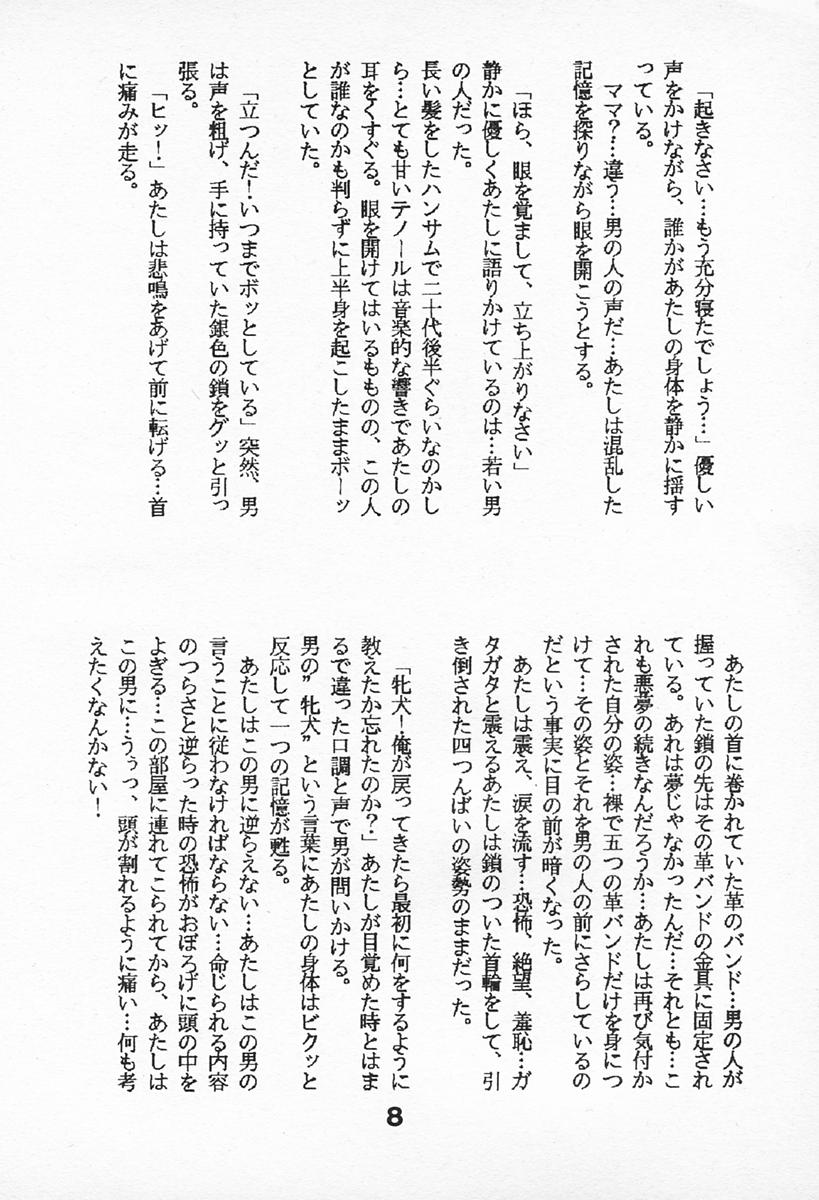 「起きなさい…もう充分寝たでしょう…」優しい
声をかけながら、誰かがあたしの身体を静かに揺す
っている。
ママ?…違う…男の人の声だ…あたしは混乱した
記憶を探りながら眼を開こうとする。
「ほら、眼を覚まして、立ち上がりなさい」
静かに優しくあたしに語りかけているのは…若い男
の人だった。
長い髪をしたハンサムで二十代後半ぐらいなのかし
ら…とても甘いテノールは音楽的な響きであたしの
耳をくすぐる。眼を開けてはいるももの、この人
が誰なのかも判らずに上半身を起こしたままボーッ
としていた。
「立つんだ!いつまでボッとしている」突然、男
は声を粗げ、手に持っていた銀色の鎖をグッと引っ
張る。
「ヒッ!」あたしは悲鳴をあげて前に転げる…首
に痛みが走る。
あたしの首に巻かれていた革のバンド…男の人が
握っていた鎖の先はその革バンドの金具に固定され
ている。あれは夢じゃなかったんだ…それとも…こ
れも悪夢の続きなんだろうか…あたしは再び気付か
された自分の姿…裸で五つの革バンドだけを身につ
けて…その姿とそれを男の人の前にさらしているの
だという事実に目の前が暗くなった。
あたしは震え、涙を流す…恐怖、絶望、羞恥…ガ
タガタと震えるあたしは鎖のついた首輪をして、引
き倒された四つんばいの姿勢のままだった。
「牝犬!俺が戻ってきたら最初に何をするように
教えたか忘れたのか?」あたしが目覚めた時とはま
るで違った口調と声で男が問いかける。
男の”牝犬”という言葉にあたしの身体はビクッと
反応して一つの記憶が甦る。
あたしはこの男に逆らえない…あたしはこの男の
言うことに従わなければならない…命じられる内容
のつらさと逆らった時の恐怖がおぼろげに頭の中を
よぎる…この部屋に連れてこられてから、あたしは
この男に…うぅっ、頭が割れるように痛い…何も考
えたくなんかない!
8